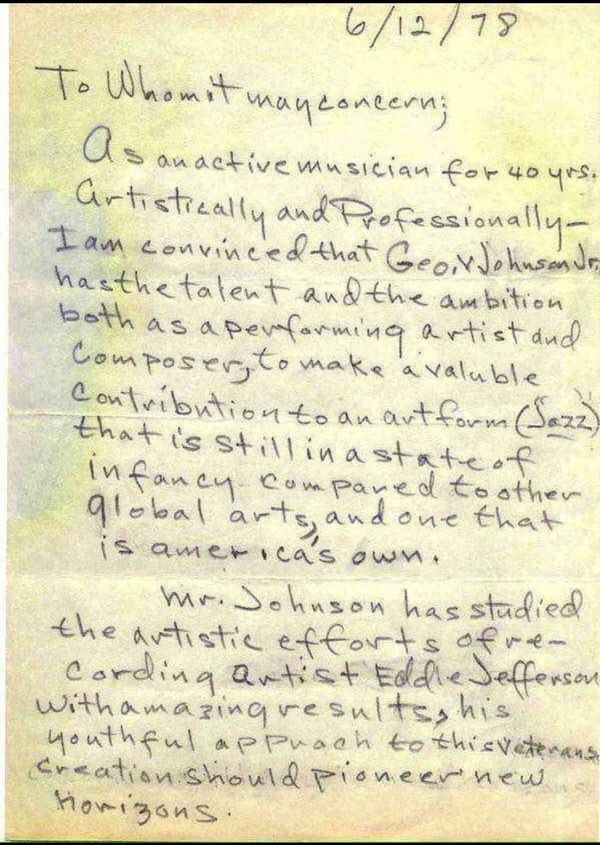 6/12/78
To Whom it may concern;
As an active musician for 40 yrs.
Artistically and Professionally-
I am convinced that Geo. V Johnson Jr.
has the talent and the ambition
both as a performing artist and
Composer, to make a valuble
Contribution to an art form ("Jazz")
that is still in a state of
infancy compared to other
global arts, and one that
is america's own.
Mr. Johnson has studied
the artistic efforts of re-
cording Artist Eddie Jefferson
with amazing results, his
youthful approach to this veterans
creation should pioneer new
Horizons.